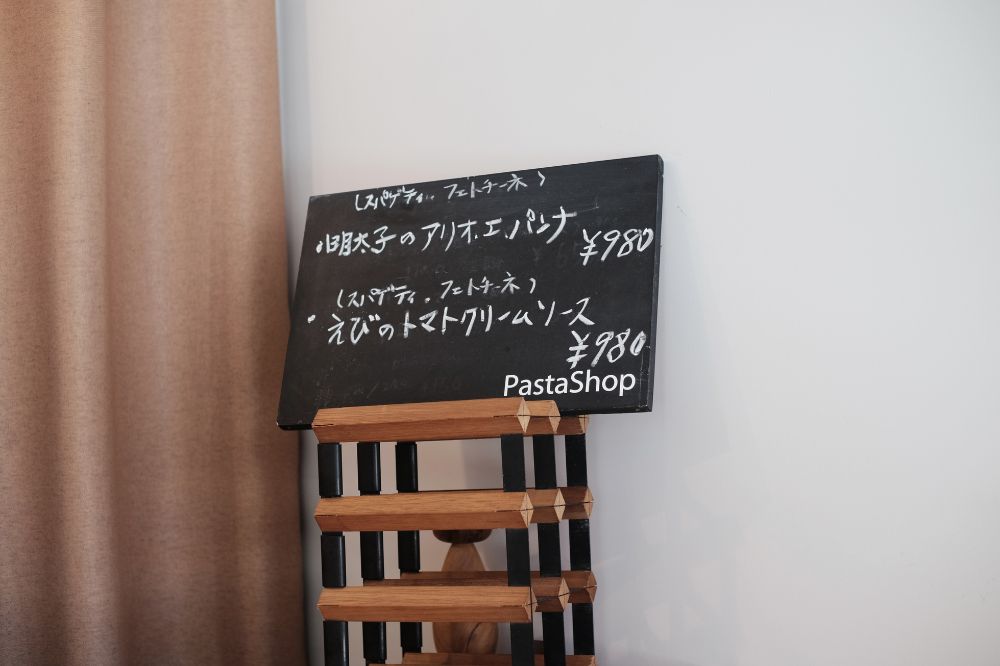 (スパゲティ、フェトチーネ)
・明太子のアリオ.エ.パンナ
¥980
(スパゲティ、フェトチーネ)
・えびのトマトクリームソース
¥980
PastaShop